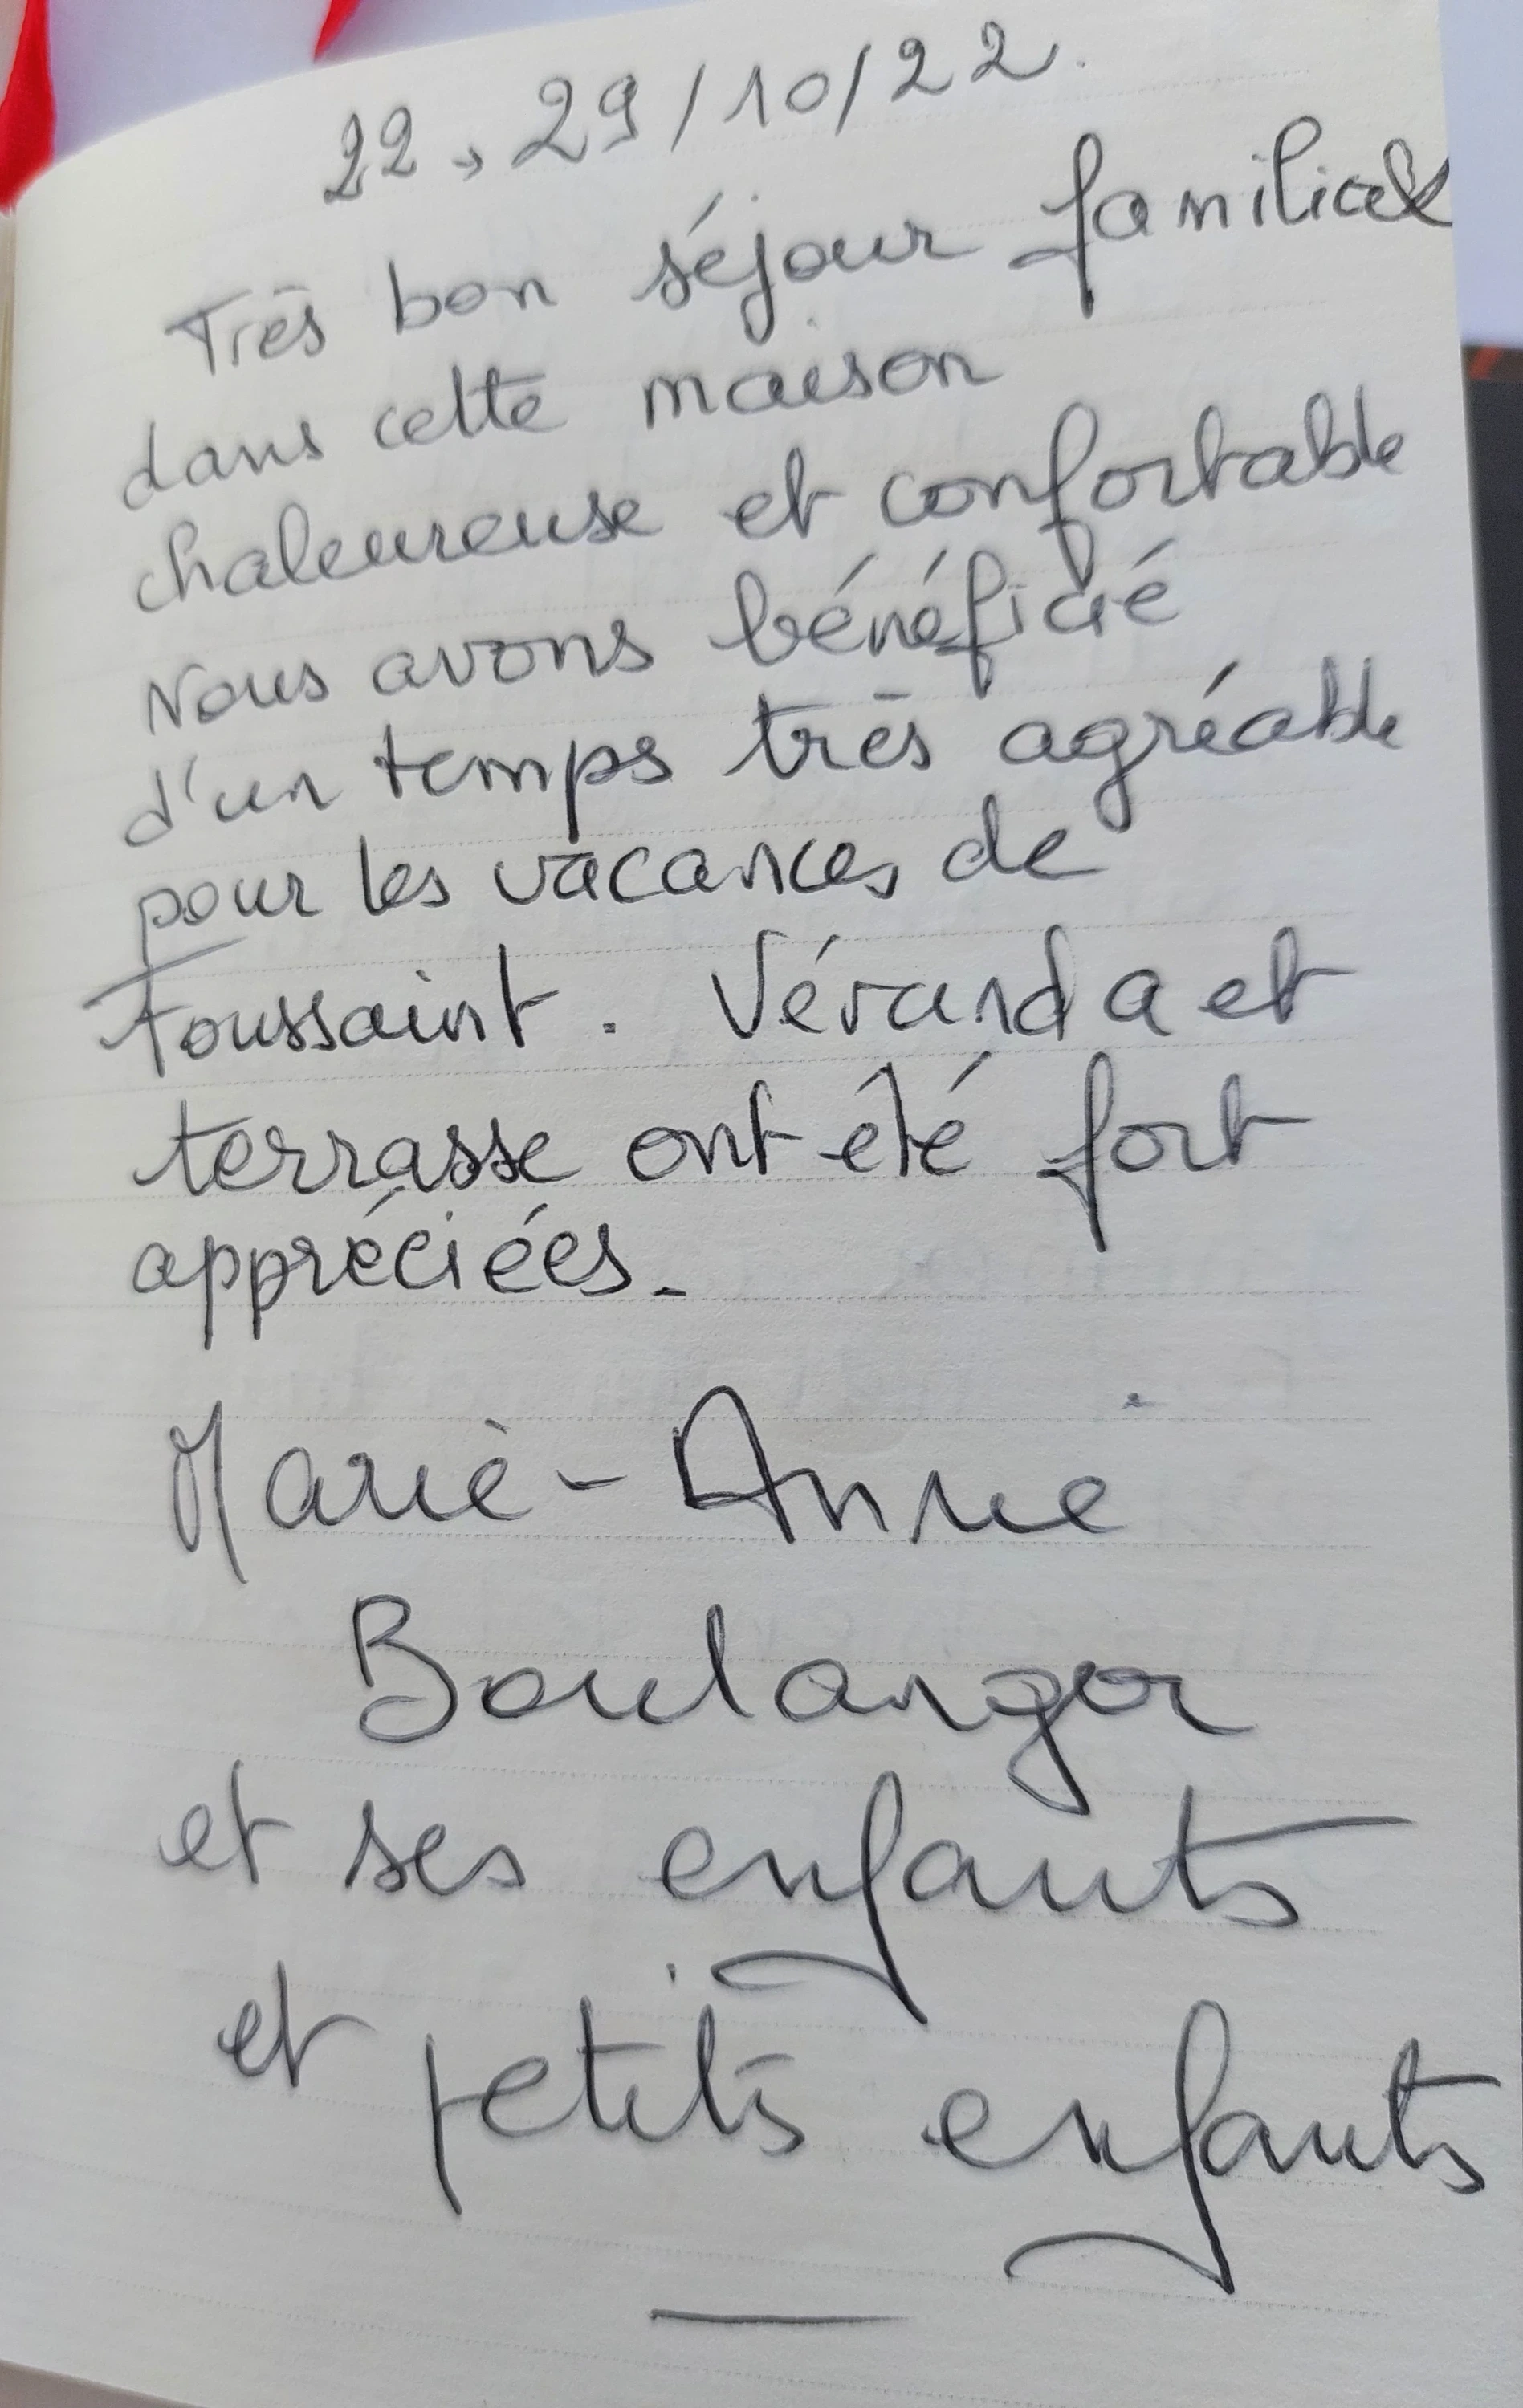 22, 29/10/22.
Très bon séjour familial
dans cette maison
chaleureuse et confortable
Nous avons bénéficié
d'un temps très agréable
pour les vacances de
Toussaint. Véranda et
terrasse ont été fort
appréciées.
Marie-Anne
Boulanger
et ses enfants
et petits enfants